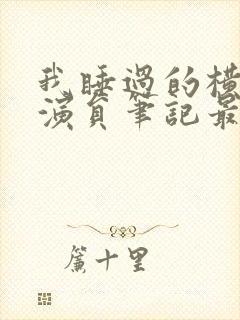 我睡過的橫
演員筆記最
簾十里